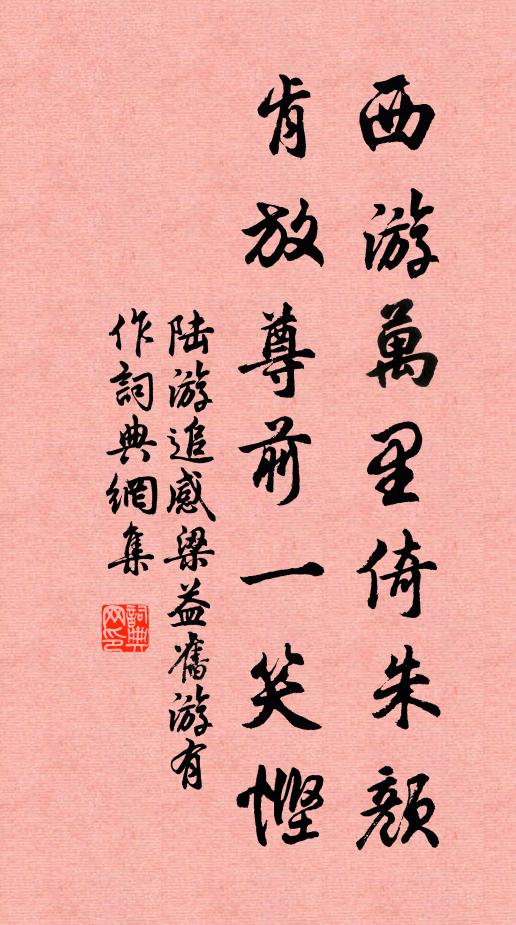 西游萬里倚朱顏
肯放尊前一笑慳
陆游追感梁益舊游有
作詞典網集
詞典
网印